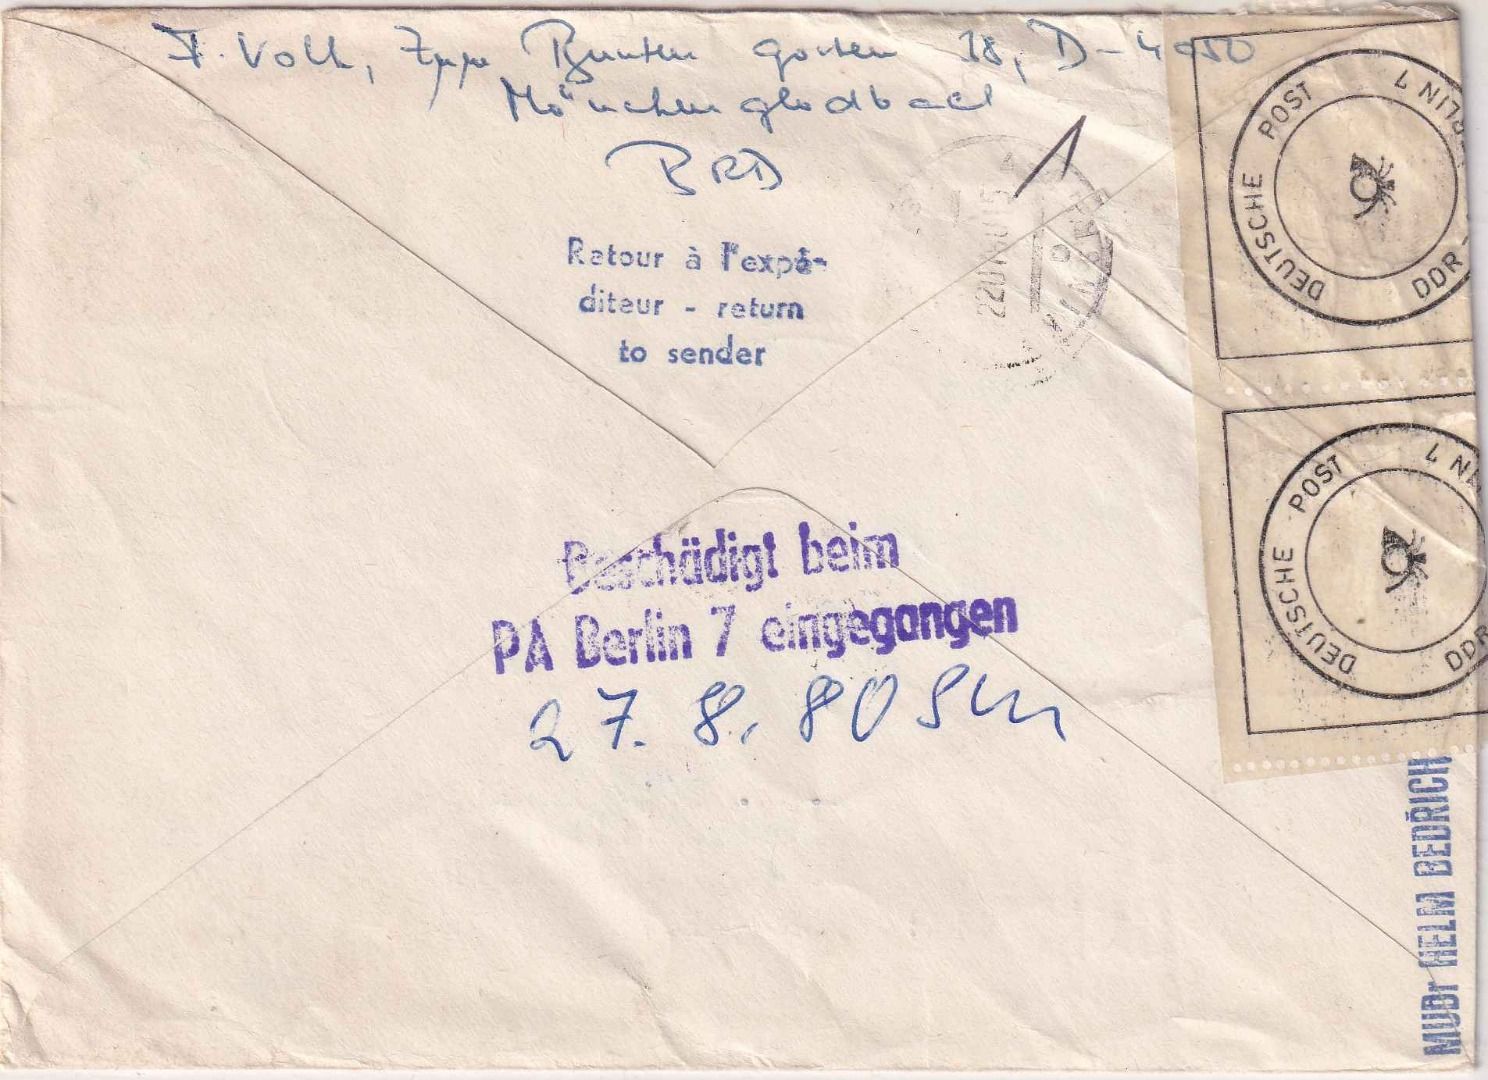 F. Voll, Zum Bunten garten 18, D-4050
Mönchengladbach
BRD
Retour à l'expé-
diteur - return
to sender
Beschädigt beim
PA Berlin 7 eingegangen
27. 8. 80
DEUTSCHE POST
RLIN 7
DDR-
DEUTSCHE POST
IN 7
DDR
MUDr HELM BEDŘICH